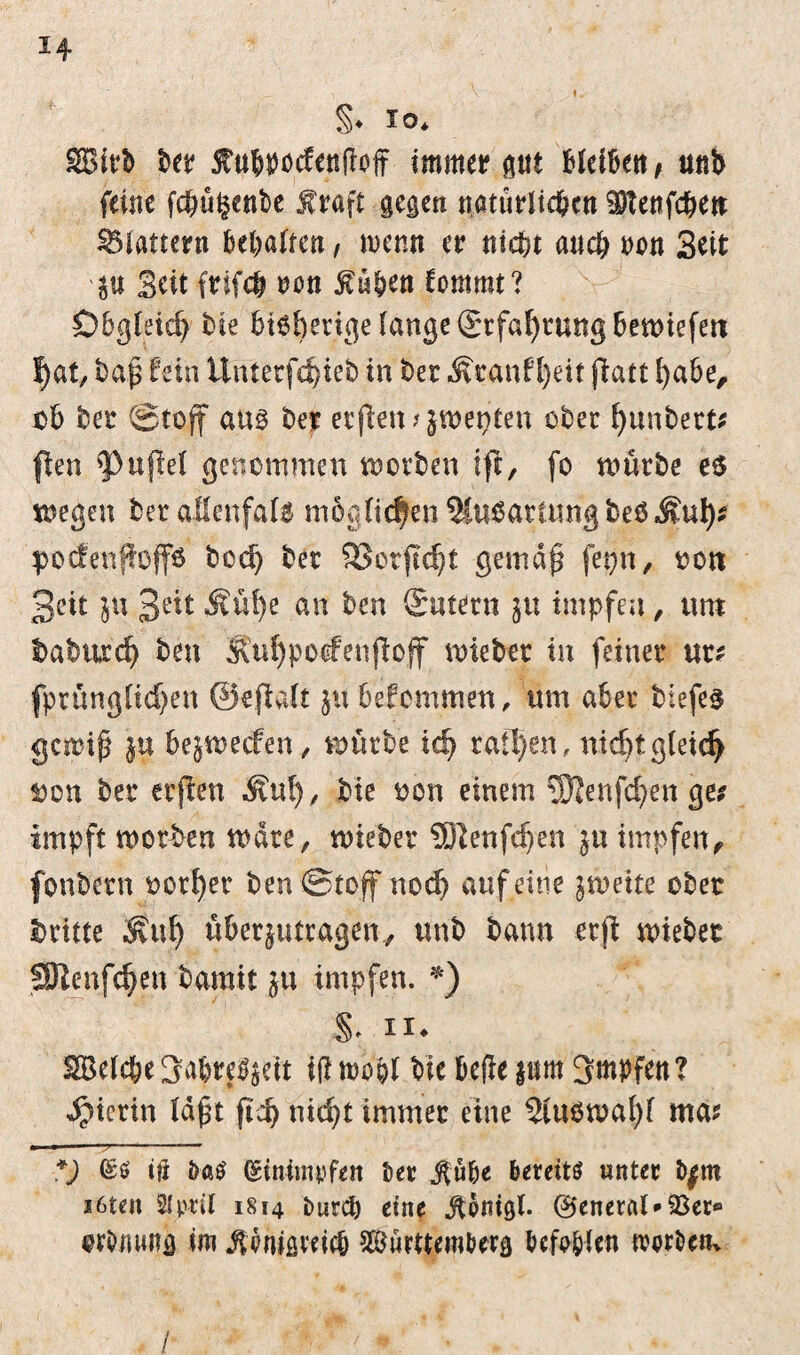 14
§. 10.
Wird der Kuhpockenstoff immer gut bleiben, und
seine schützende Kraft gegen natürlichen Menschen
Blattern behalten, wenn er nicht auch von Zeit
zu Zeit frisch von Kühen kommt?
Obgleich die bisherige lange Erfahrung bewiesen
hat, daß kein Unterschied in der Krankheit statt habe,
ob der Stoff aus der ersten, zweyten oder hundert-
sten Pustel genommen worden ist, so würde es
wegen der allenfals möglichen Ausartung des Kuh-
pockenstoffs doch der Vorsicht gemäß seyn, von
Zeit zu Zeit Kühe an den Eutern zu impfen, um
dadurch den Kuhpockenstoff wieder in seiner ur-
sprünglichen Gestalt zu bekommen, um aber dieses
gewiß zu bezwecken, würde ich rathen, nicht gleich
von der ersten Kuh, die von einem Menschen ge-
impft worden wäre, wieder Menschen zu impfen,
sondern vorher den Stoff noch auf eine zweite oder
dritte Kuh überzutragen, und dann erst wieder
Menschen damit zu impfen. *)
§. 11.
Welche Jahreszeit ist wohl die beste zum Impfen?
Hierin läßt sich nicht immer eine Auswahl ma-
*) Es ist das Einimpfen der Kühe bereits unter dem
16ten April 1814 durch eine Königl. General-Ver-
ordnung im Königreich Württemberg befohlen worden.